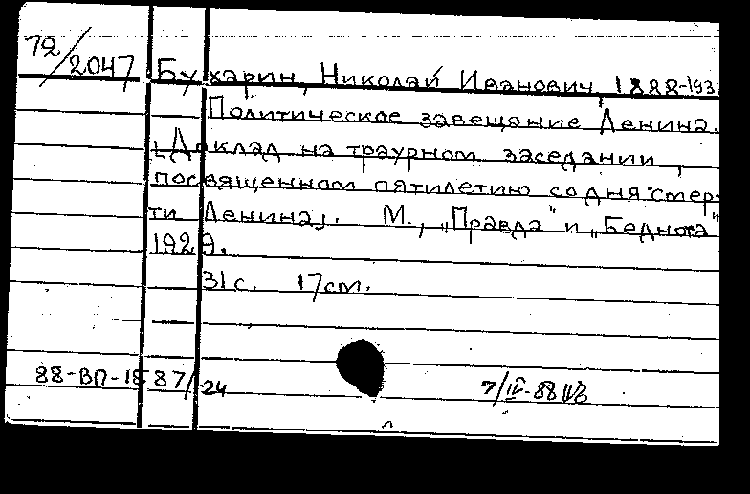 72/2047
Бухарин, Николай Иванович, 1888-193
Политическое завещание Ленина.
[Доклад на траурном заседании,
посвященном пятилетию со дня смер-
ти Ленина]. М., „Правда" и „Беднота"
1929.
31с. 17см.
88-ВП-1587/24 7/IV-88